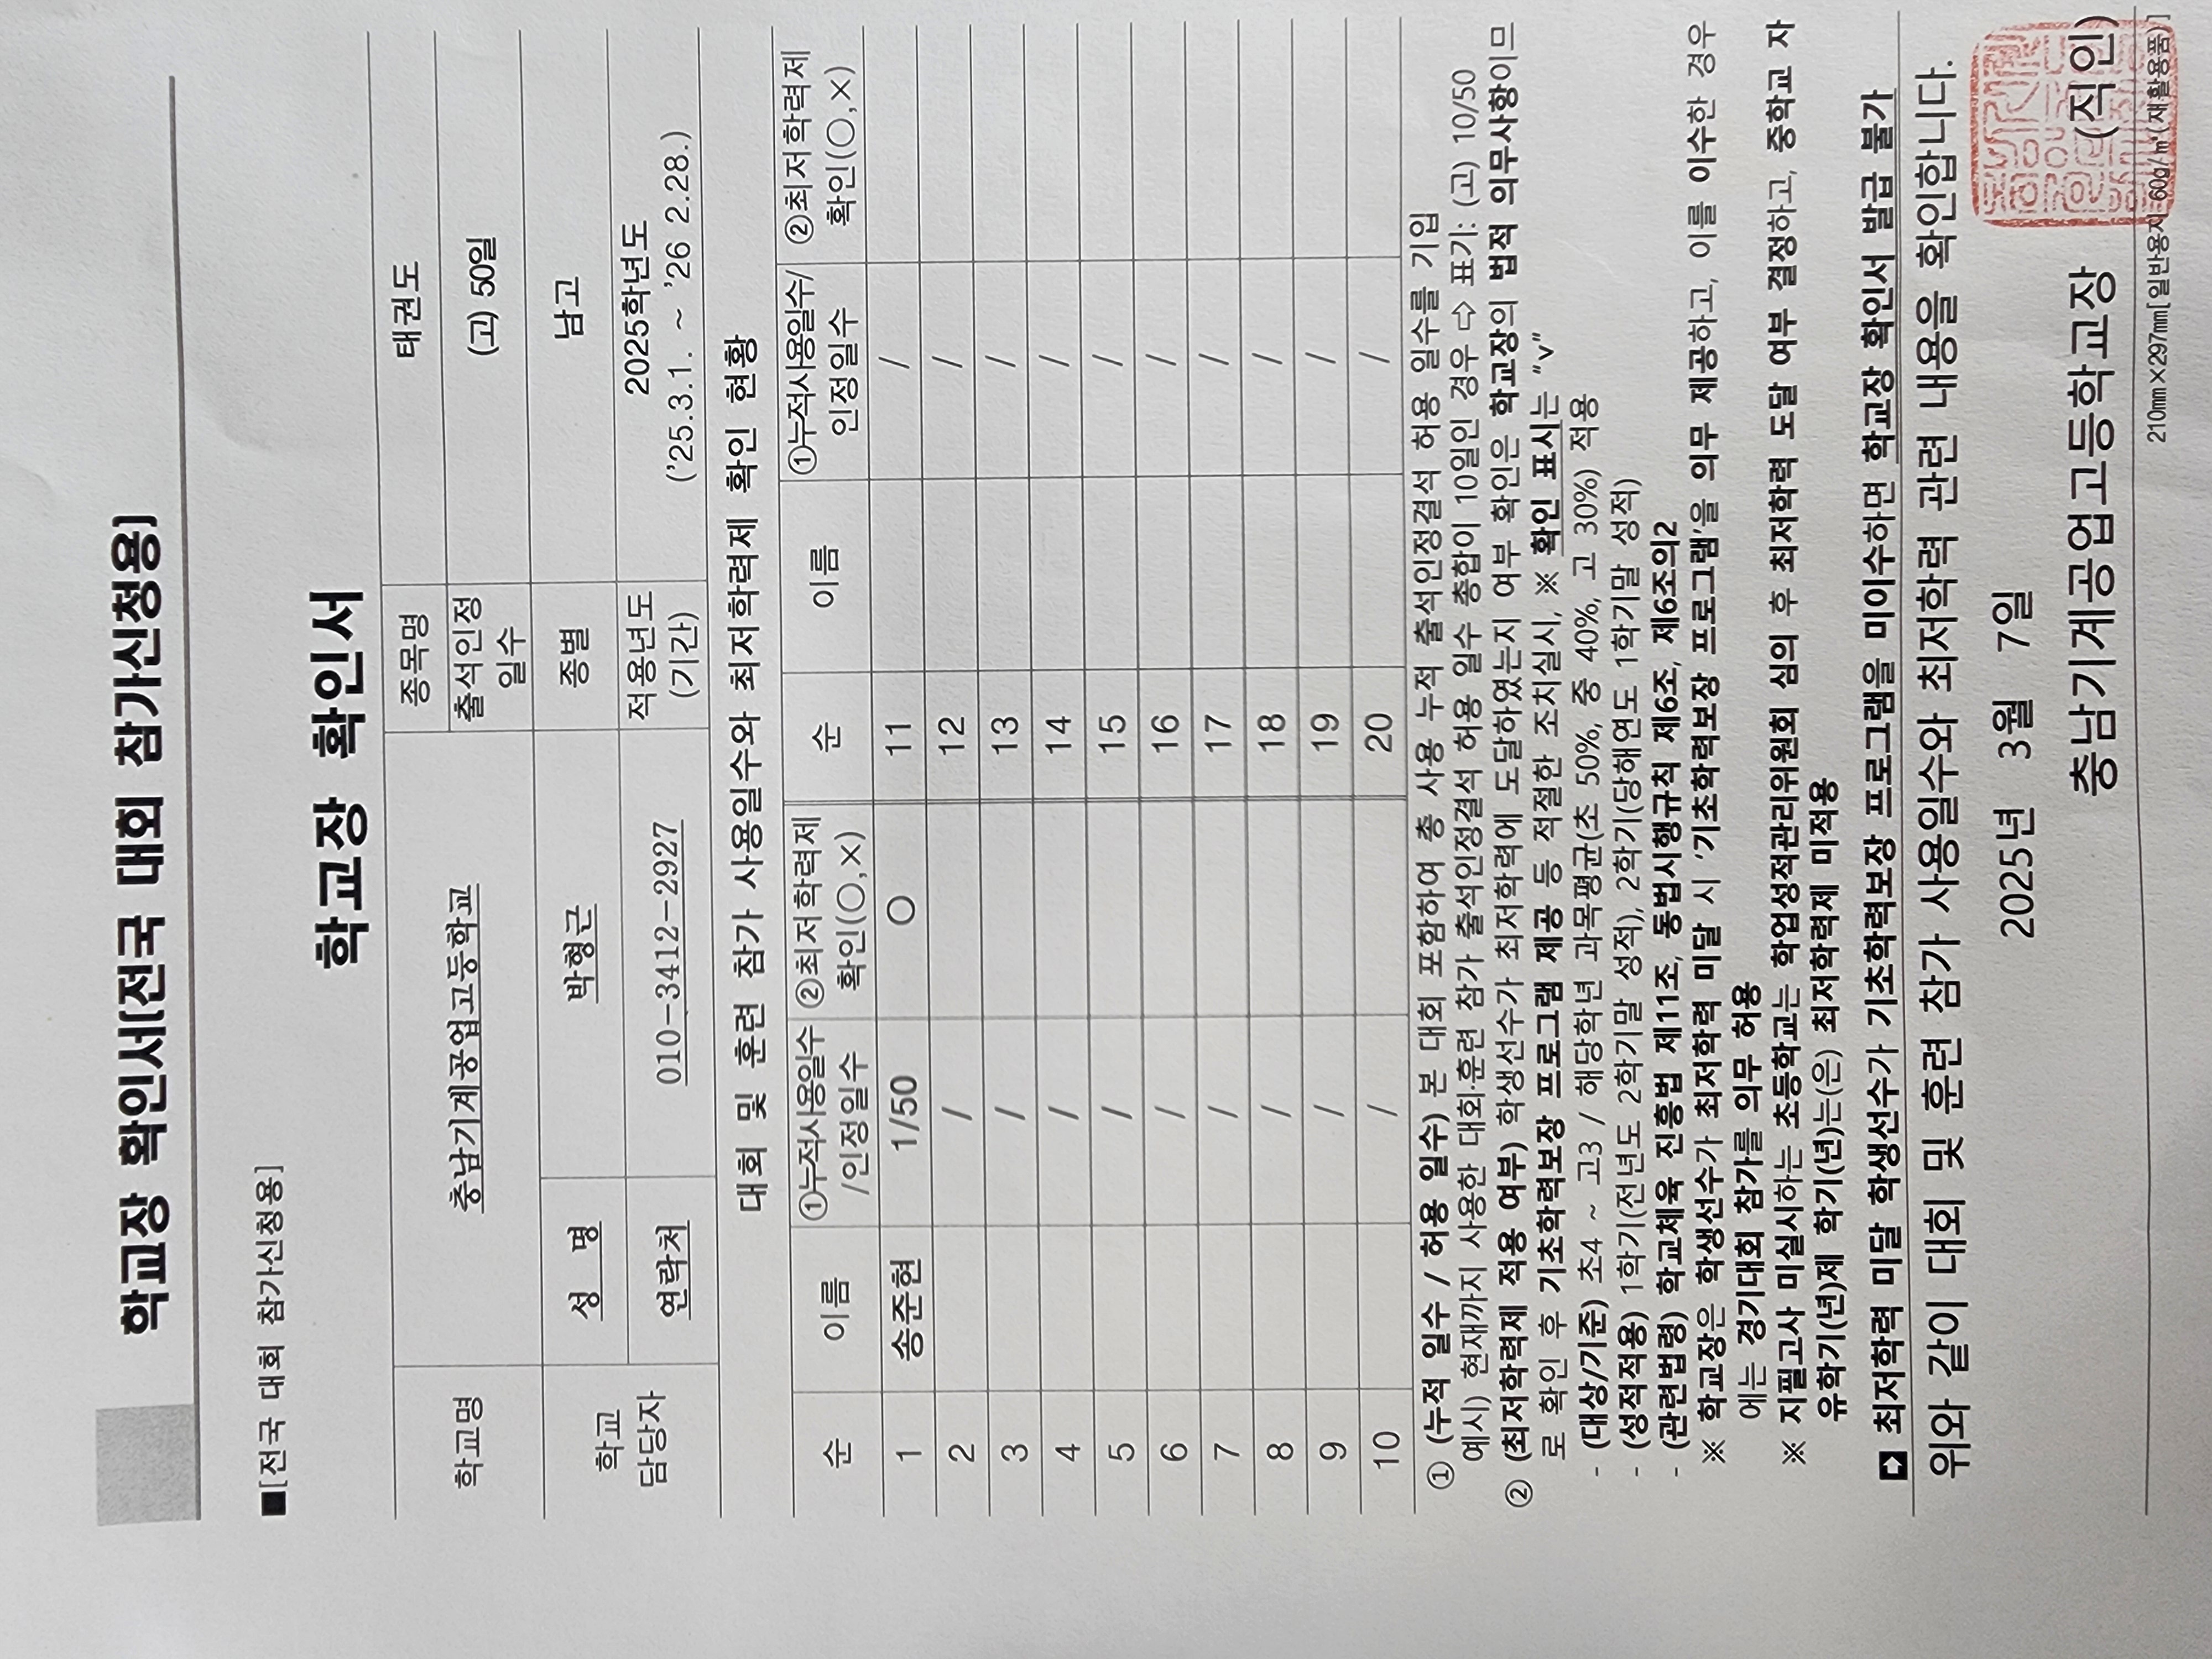 학교장 확인서(전국 대회 참가신청용)
■[전국 대회 참가신청용]
학교장 확인서
학교명 충남기계공업고등학교 종목명 태권도
출석인정 일수 (고) 50일
학교 담당자 성 명 박형근 종별 남고
연락처 010-3412-2927 적용년도 (기간) 2025학년도 ('25.3.1. ~ '26 2.28.)
대회 및 훈련 참가 사용일수와 최저학력제 확인 현황
순 이름 ①누적사용일수 /인정일수 ②최저학력제 확인(○,×) 순 이름 ①누적사용일수/ 인정일수 ②최저학력제 확인(○,×)
1 송준현 1/50 ○ 11 /
2 / 12 /
3 / 13 /
4 / 14 /
5 / 15 /
6 / 16 /
7 / 17 /
8 / 18 /
9 / 19 /
10 / 20 /
① (누적 일수 / 허용 일수) 본 대회 포함하여 총 사용 누적 출석인정결석 허용 일수를 기입
예시) 현재까지 사용한 대회·훈련 참가 출석인정결석 허용 일수 총합이 10일인 경우 ⇨ 표기: (고) 10/50
② (최저학력제 적용 여부) 학생선수가 최저학력에 도달하였는지 여부 확인은 학교장의 법적 의무사항이므
로 확인 후 기초학력보장 프로그램 제공 등 적절한 조치실시, ※ 확인 표시는 "v"
- (대상/기준) 초4 ~ 고3 / 해당학년 과목평균(초 50%, 중 40%, 고 30%) 적용
- (성적적용) 1학기(전년도 2학기말 성적), 2학기(당해연도 1학기말 성적)
- (관련법령) 학교체육 진흥법 제11조, 동법시행규칙 제6조, 제6조의2
※ 학교장은 학생선수가 최저학력 미달 시 '기초학력보장 프로그램'을 의무 제공하고, 이를 이수한 경우
에는 경기대회 참가를 의무 허용
※ 지필고사 미실시하는 초등학교는 학업성적관리위원회 심의 후 최저학력 도달 여부 결정하고, 중학교 자
유학기(년)제 학기(년)는(은) 최저학력제 미적용
➡ 최저학력 미달 학생선수가 기초학력보장 프로그램을 미이수하면 학교장 확인서 발급 불가
위와 같이 대회 및 훈련 참가 사용일수와 최저학력 관련 내용을 확인합니다.
2025년 3월 7일
충남기계공업고등학교장 (직인)
210㎜×297㎜[일반용지 60g/㎡(재활용품)]